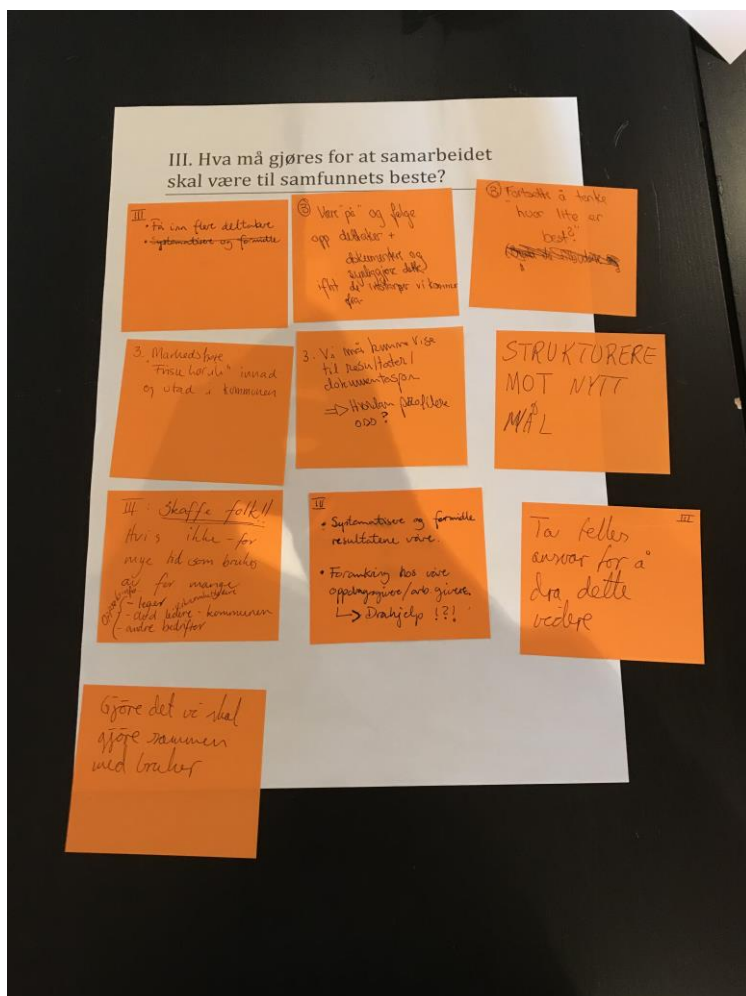 III. Hva må gjøres for at samarbeidet
skal være til samfunnets beste?
III
• Få inn flere deltakere
• Systematisere og formidle
③ Være "på" og følge
opp deltaker +
dokumenter og
synliggjøre dette
ifht de instanser vi kommer
fra
③ Fortsette å tenke
"hvor lite er
best?"
3. Markedsføre
"Frisk " innad
og utad i kommunen
3. Vi må kunne vise
til resultater/
dokumentasjon
=> Hvordan profilere
oss?
STRUKTURERE
MOT NYTT
MÅL
III: Skaffe folk!!
Hvis ikke - for
mye tid som brukes
av for mange
- leger
- avd ledere - kommunen
- andre bedrifter
III
• Systematisere og formidle
resultatene våre.
• Forankring hos våre
oppdragsgivere/arb.givere.
↳ Drahjelp !?!
III
Ta felles
ansvar for å
dra dette
videre
Gjöre det vi skal
gjöre sammen
med bruker